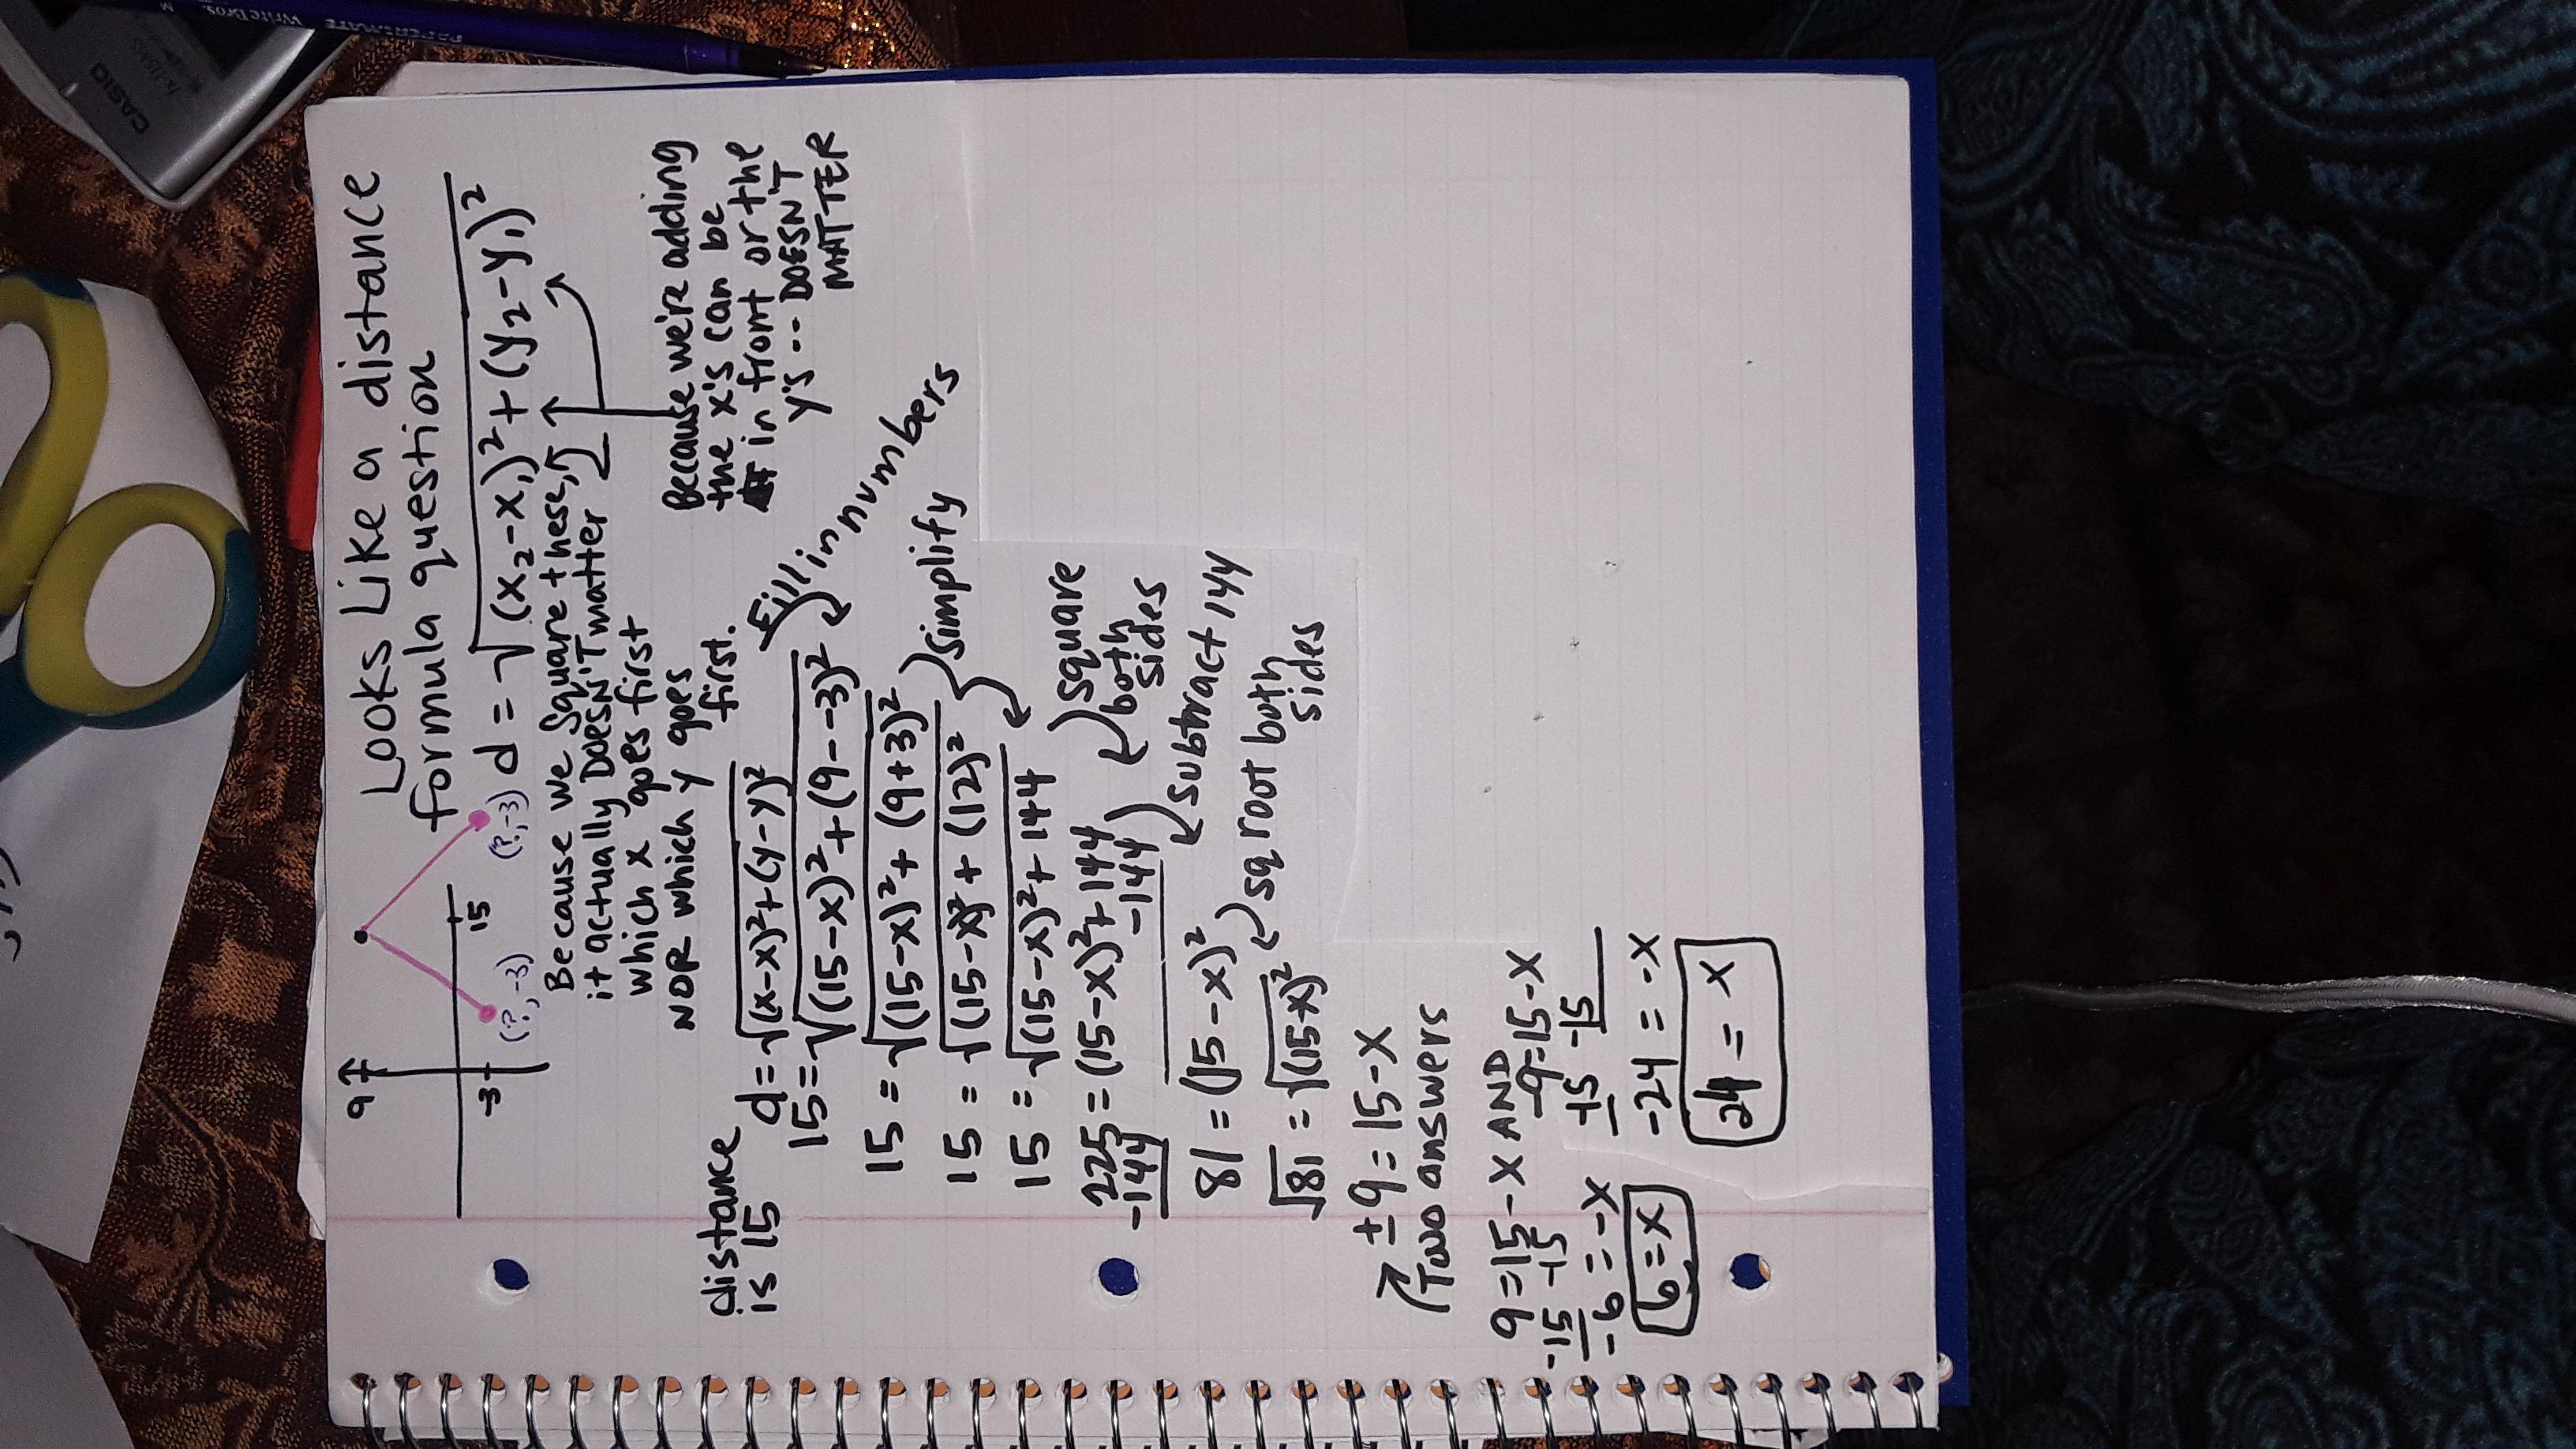 Looks Like a distance
formula question
9
15
-3
(?,-3)
(?,-3)
d = √(x₂-x₁)²+(y₂-y₁)²
Because we square these,
it actually DOESN'T matter
which x goes first
NOR which y goes
first.
Because we're adding
the x's can be
in front or the
y's... DOESN'T
MATTER
distance
is 15
d=√(x-x)²+(y-y)²
Fill in numbers
15=√(15-x)²+(9--3)²
15=√(15-x)²+(9+3)²
simplify
15=√(15-x)²+(12)²
15=√(15-x)²+144
square
both
sides
225=(15-x)²+144
-144 -144
subtract 144
81=(15-x)²
sq root both
sides
√81=√(15-x)²
±9=15-x
Two answers
9=15-x AND -9=15-x
-15 -15 -15 -15
-6=-x -24=-x
6=x 24=x
CASIO
PAPERMATE Write Bros.